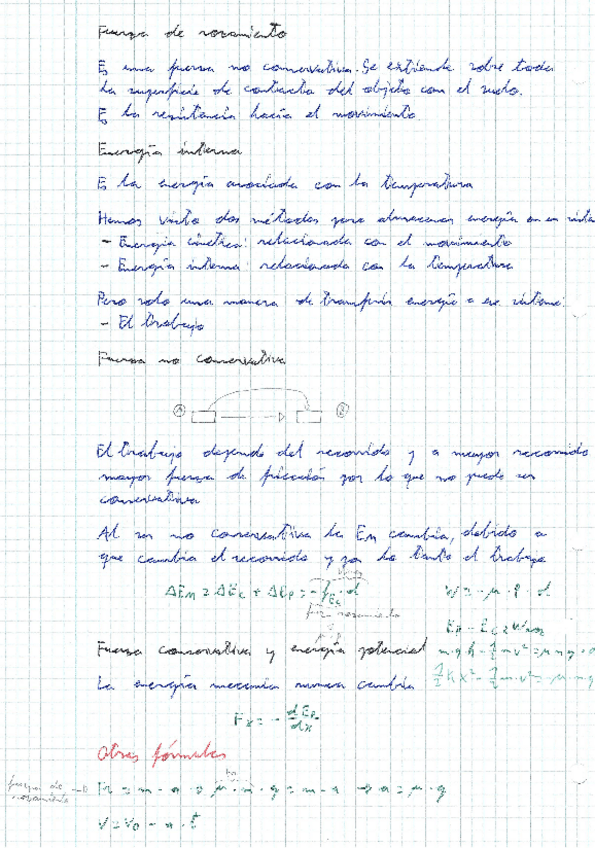 Fuerza de rozamiento
Es una fuerza no conservativa. Se extiende sobre toda
la superficie de contacto del objeto con el suelo.
Es la resistencia hacia el movimiento
Energía interna
Es la energía asociada con la temperatura
Hemos visto dos métodos para almacenar energía en un sistema
- Energía cinética: relacionada con el movimiento
- Energía interna: relacionada con la temperatura
Pero solo una manera de transferir energía a ese sistema:
- El trabajo
Fuerza no conservativa
A B
El trabajo depende del recorrido y a mayor recorrido
mayor fuerza de fricción por lo que no puede ser
conservativa
Al ser no conservativa la Em cambia, debido a
que cambia el recorrido y por lo tanto el trabajo
ΔEm = ΔEc + ΔEp = - f · d
fuerza rozamiento
Fuerza conservativa y energía potencial
La energía mecánica nunca cambia
Fx = - dEp/dx
Otras fórmulas
fuerza de rozamiento → Fr = m · a → μ · m · g = m · a → a = μ · g
V = V0 - a · t